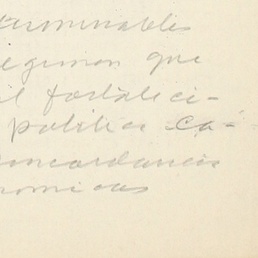 terminables
egimon que
il fortaleci-
politica ca-
concordancias
nomicas